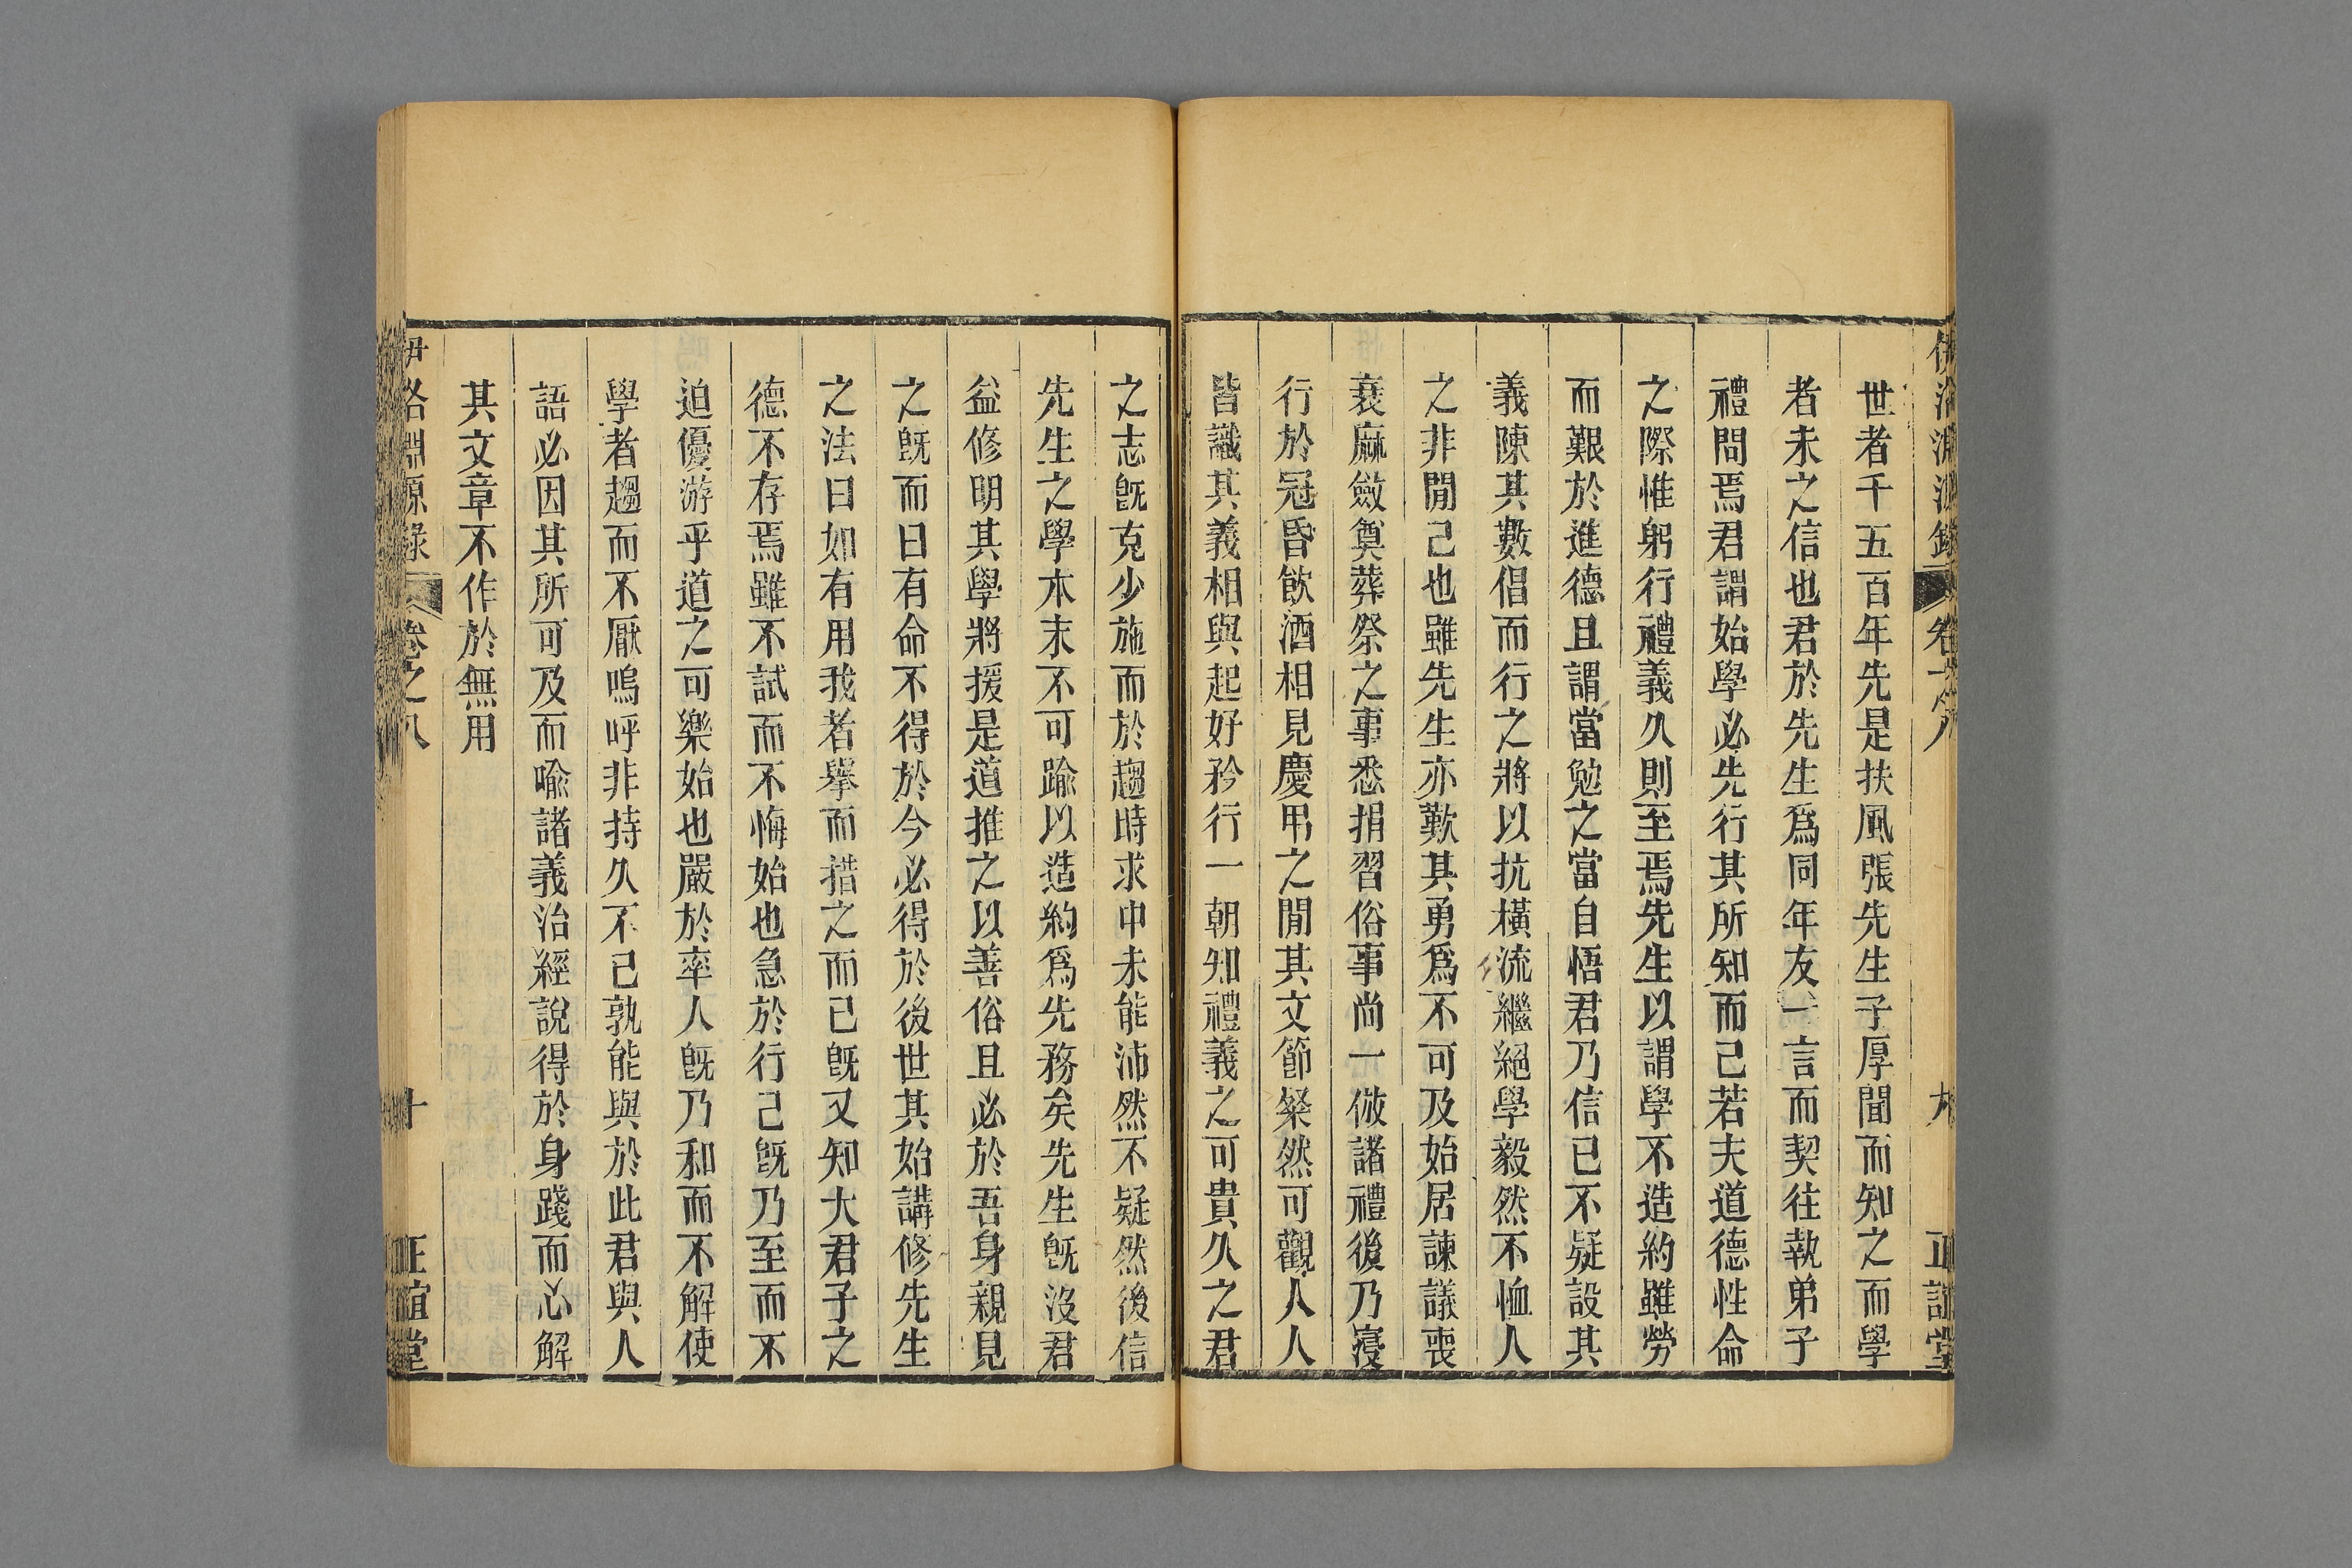 世者千五百年先是扶風張先生子厚聞而知之而學
者未之信也君於先生爲同年友一言而契往執弟子
禮問焉君謂始學必先行其所知而已若夫道德性命
之際惟躬行禮義久則至焉先生以謂學不造約雖勞
而艱於進德且謂當勉之當自悟君乃信已不疑設其
義陳其數倡而行之將以抗橫流繼絕學毅然不恤人
之非間己也雖先生亦歎其勇爲不可及始居諫議喪
衰麻斂奠葬祭之事悉捐習俗事尚一倣諸禮後乃寖
行於冠昏飲酒相見慶弔之間其文節粲然可觀人人
皆識其義相與起好矜行一朝知禮義之可貴久之君
之志旣克少施而於趨時求中未能沛然不疑然後信
先生之學本末不可踰以造約爲先務矣先生旣沒君
益修明其學將援是道推之以善俗且必於吾身親見
之旣而曰有命不得於今必得於後世其始講修先生
之法曰如有用我者舉而措之而已旣又知大君子之
德不存焉雖不試而不悔始也急於行己旣乃至而不
迫優游乎道之可樂始也嚴於率人旣乃和而不解使
學者趨而不厭嗚呼非持久不已孰能與於此君與人
語必因其所可及而喩諸義治經說得於身踐而心解
其文章不作於無用
伊洛淵源錄 卷之八 十 正誼堂